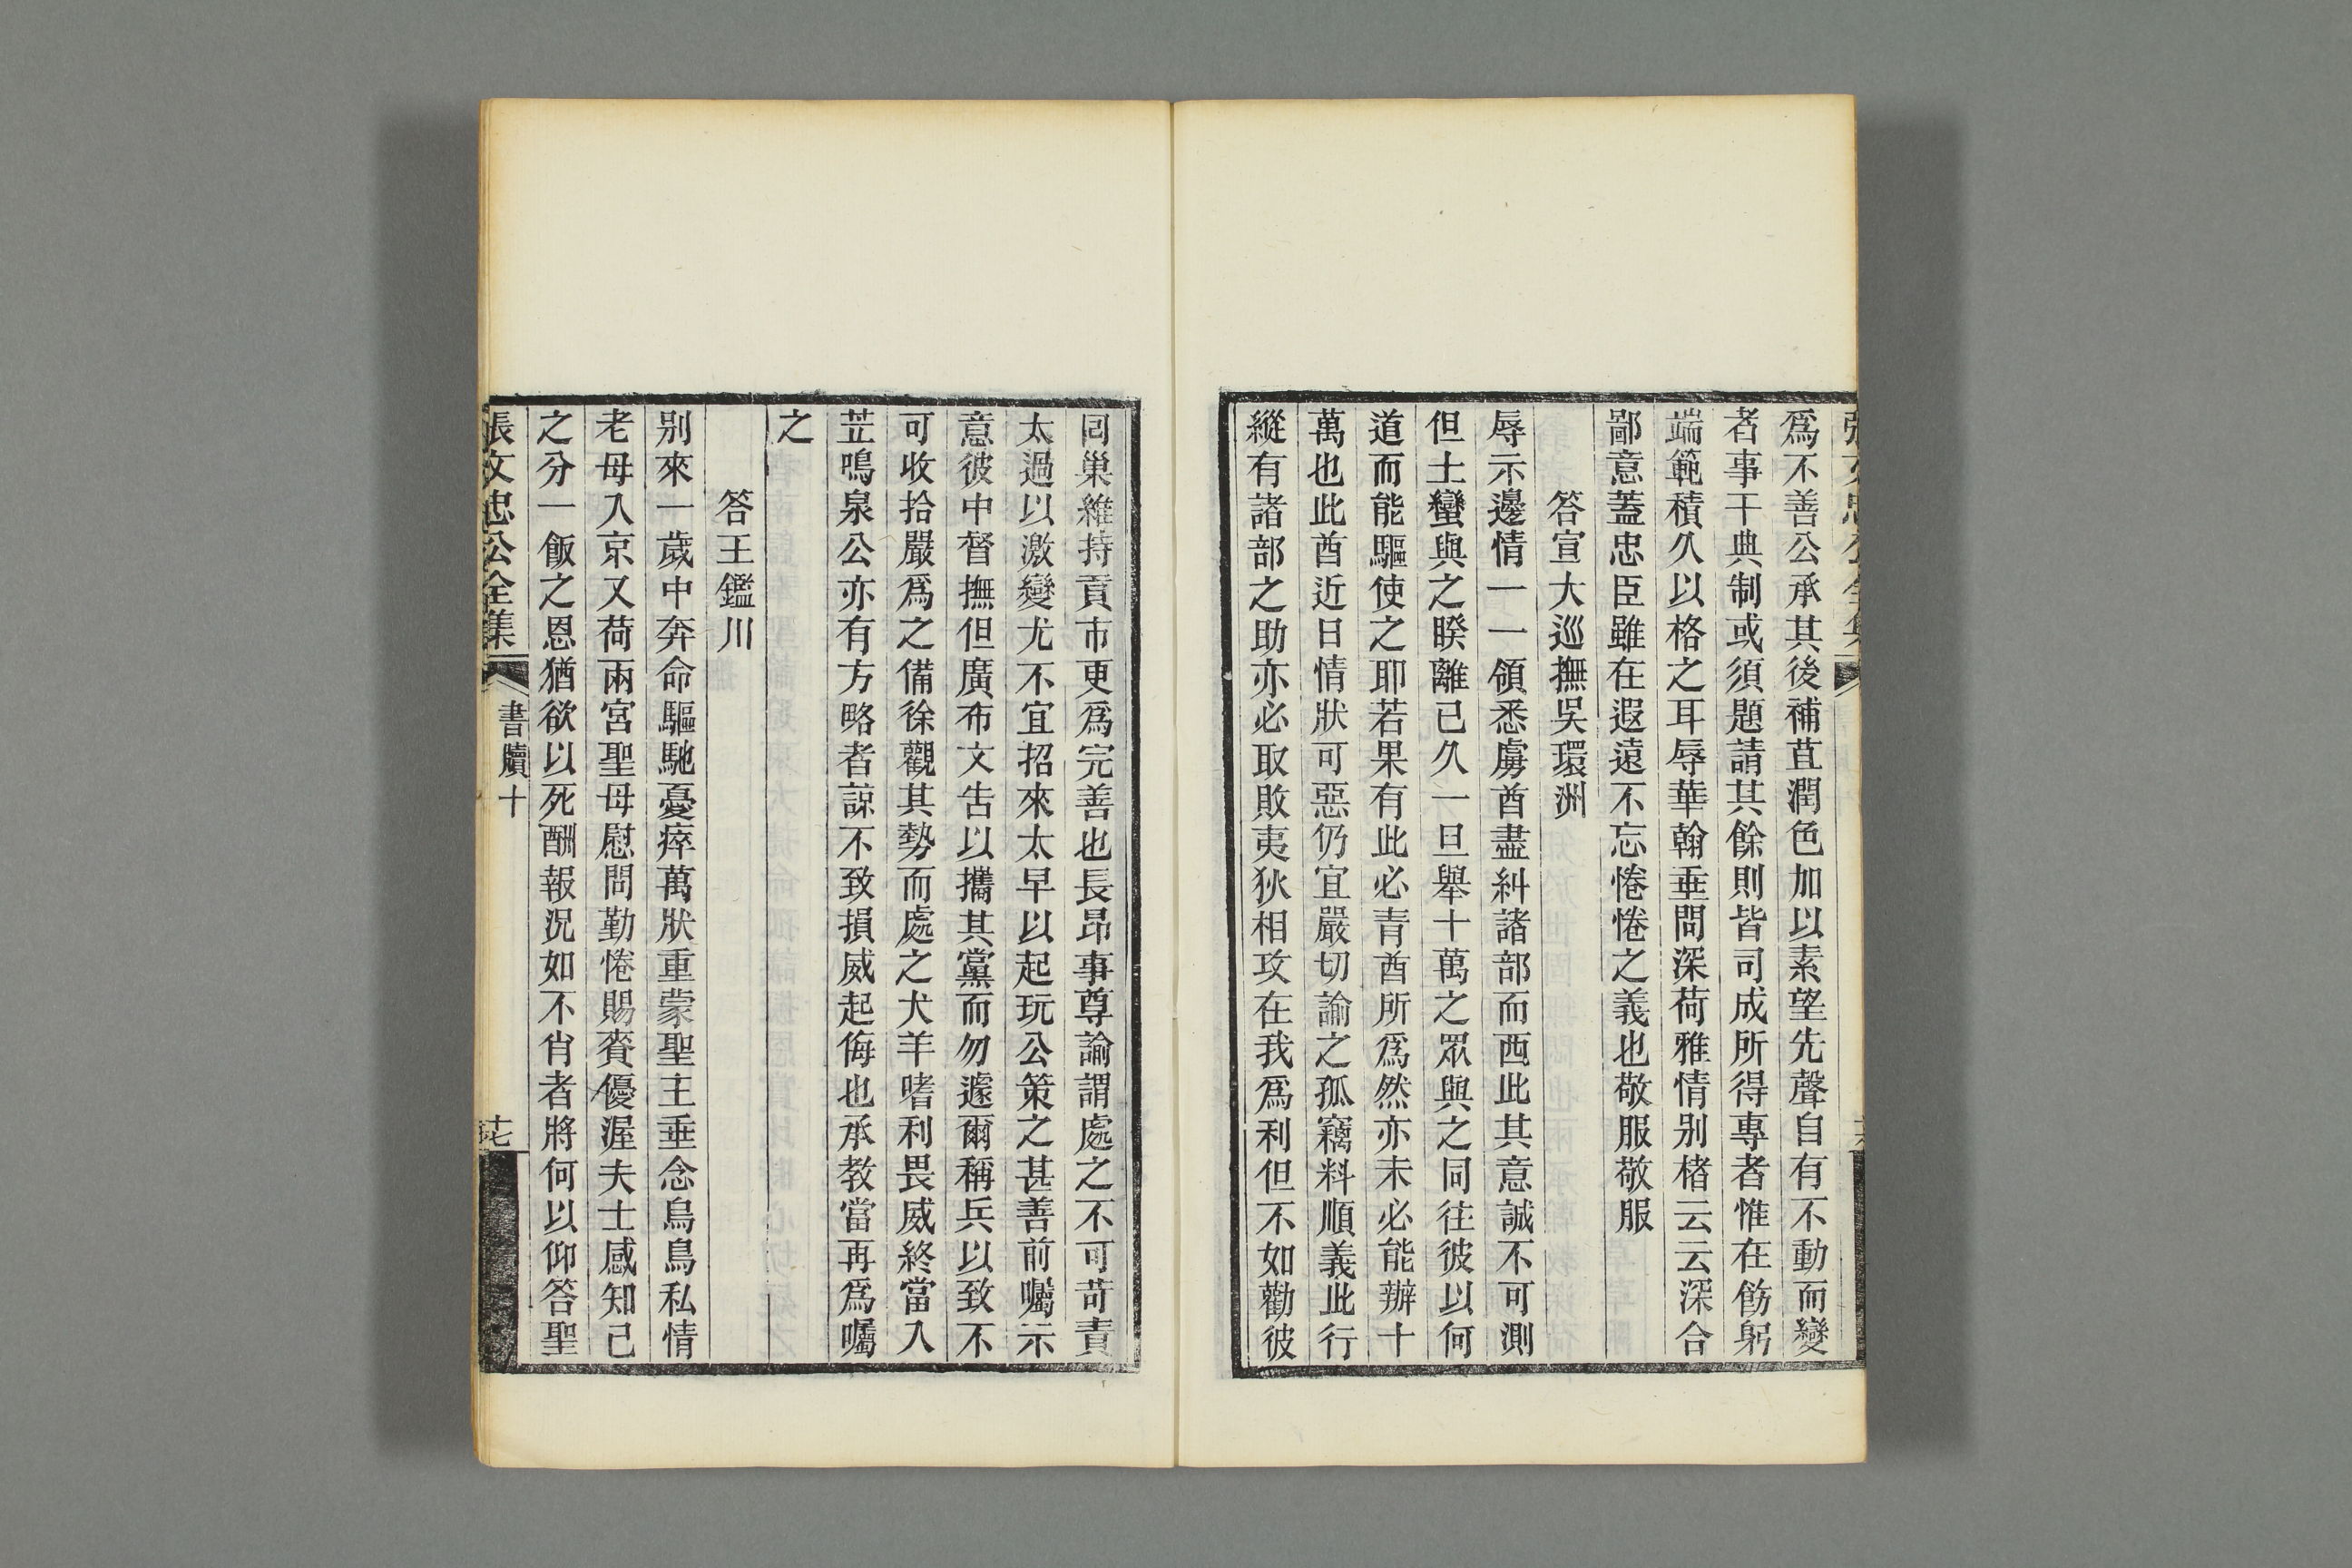 爲不善公承其後補苴潤色加以素望先聲自有不動而變
者事干典制或須題請其餘則皆司成所得專者惟在飭躬
端範積久以格之耳辱華翰垂問深荷雅情别楮云云深合
鄙意蓋忠臣雖在遐遠不忘惓惓之義也敬服敬服
答宣大巡撫吳環洲
辱示邊情一一領悉虜酋盡糾諸部而西此其意誠不可測
但土蠻與之睽離已久一旦舉十萬之眾與之同往彼以何
道而能驅使之耶若果有此必青酋所爲然亦未必能辦十
萬也此酋近日情狀可惡仍宜嚴切諭之孤竊料順義此行
縱有諸部之助亦必取敗夷狄相攻在我爲利但不如勸彼
囘巢維持貢市更爲完善也長昂事尊諭謂處之不可苛責
太過以激變尤不宜招來太早以起玩公策之甚善前囑示
意彼中督撫但廣布文告以攜其黨而勿遽爾稱兵以致不
可收拾嚴爲之備徐觀其勢而處之犬羊嗜利畏威終當入
苙鳴泉公亦有方略者諒不致損威起侮也承教當再爲囑
之
答王鑑川
别來一歲中奔命驅馳憂瘁萬狀重蒙聖主垂念烏鳥私情
老母入京又荷兩宮聖母慰問勤惓賜賚優渥夫士感知己
之分一飯之恩猶欲以死酬報況如不肖者將何以仰答聖
張文忠公全集 書牘十 十七